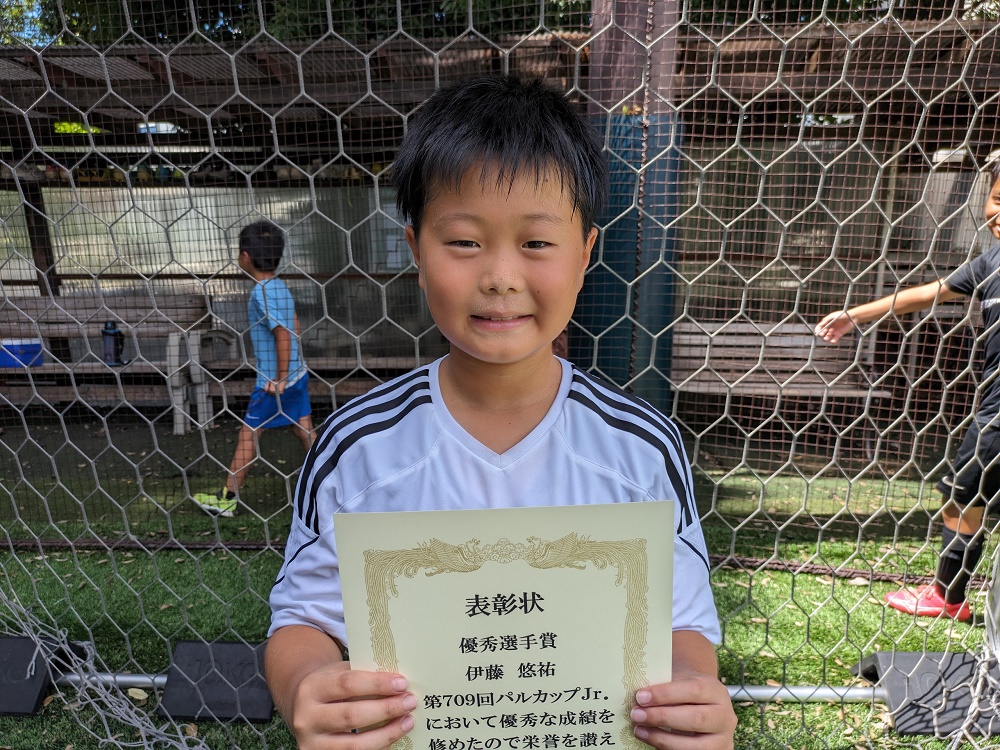 表彰状
優秀選手賞
伊藤 悠祐
第709回パルカップJr.
において優秀な成績を
修めたので栄誉を讃え